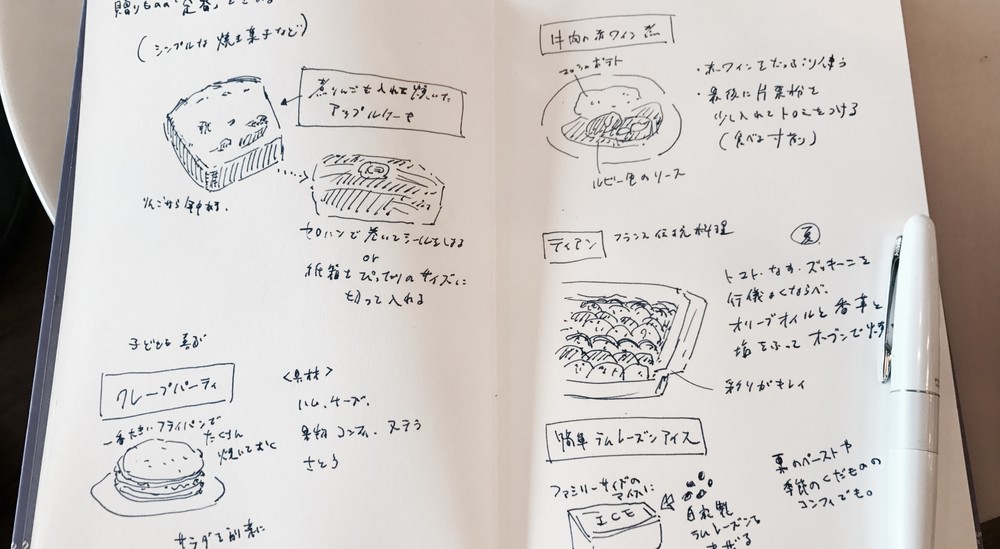 (シンプルな焼き菓子など)
煮りんごも入れて焼いた
アップルケーキ
セロハンで巻いてシールをはる
or
紙箱をぴったりのサイズに
切って入れる
子どもも喜ぶ
クレープパーティ
一番大きいフライパンで
たくさん
焼いておく
<具材>
ハム、チーズ、
果物コンフィ、ヌテラ
さとう
サラダを前菜に
牛肉の赤ワイン煮
マッシュポテト
ルビー色のソース
・赤ワインをたっぷり使う
・最後に片栗粉を
少し入れてトロミをつける
(食べる寸前)
ティアン
フランス伝統料理
夏
トマト・なす・ズッキーニを
行儀よくならべ、
オリーブオイルと香草と
塩をふってオーブンで焼
彩りがキレイ
簡単ラムレーズンアイス
ファミリーサイズの
アイスに
ICE
自家製
ラムレーズンを
まぜる
栗のペーストや
季節のくだものの
コンフィでも。